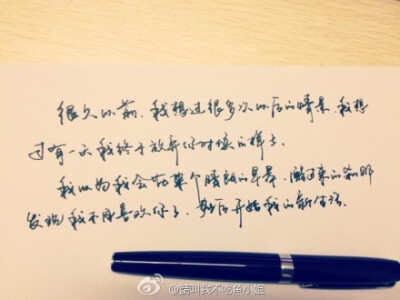 很久以前,我想过很多次以后的情景,我想
过有一天我终于放弃你时候的样子
我以为我会在某个晴朗的早晨,醒过来的刹那
发现我不用喜欢你了,然后开始我的新生活.
@请叫我不吃鱼小姐